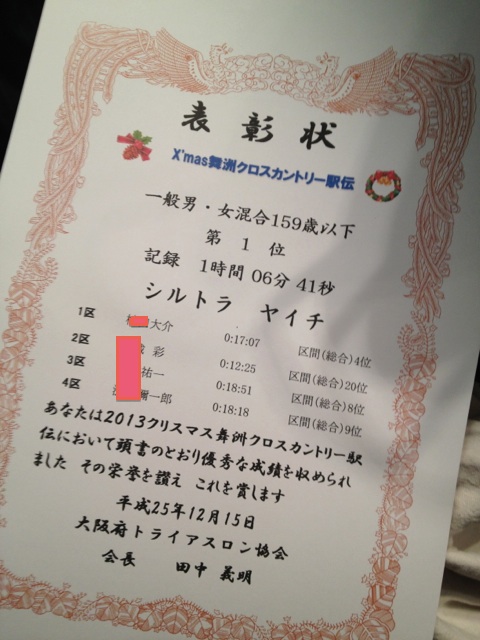 表彰状
X'mas舞洲クロスカントリー駅伝
一般男・女混合159歳以下
第 1 位
記録 1時間 06分 41秒
シルトラ ヤイチ
1区 大介 0:17:07 区間(総合)4位
2区 彩 0:12:25 区間(総合)20位
3区 祐一 0:18:51 区間(総合)8位
4区 彌一郎 0:18:18 区間(総合)9位
あなたは2013クリスマス舞洲クロスカントリー駅
伝において頭書のとおり優秀な成績を収められ
ました その栄誉を讃え これを賞します
平成25年12月15日
大阪府トライアスロン協会
会長 田中 義明